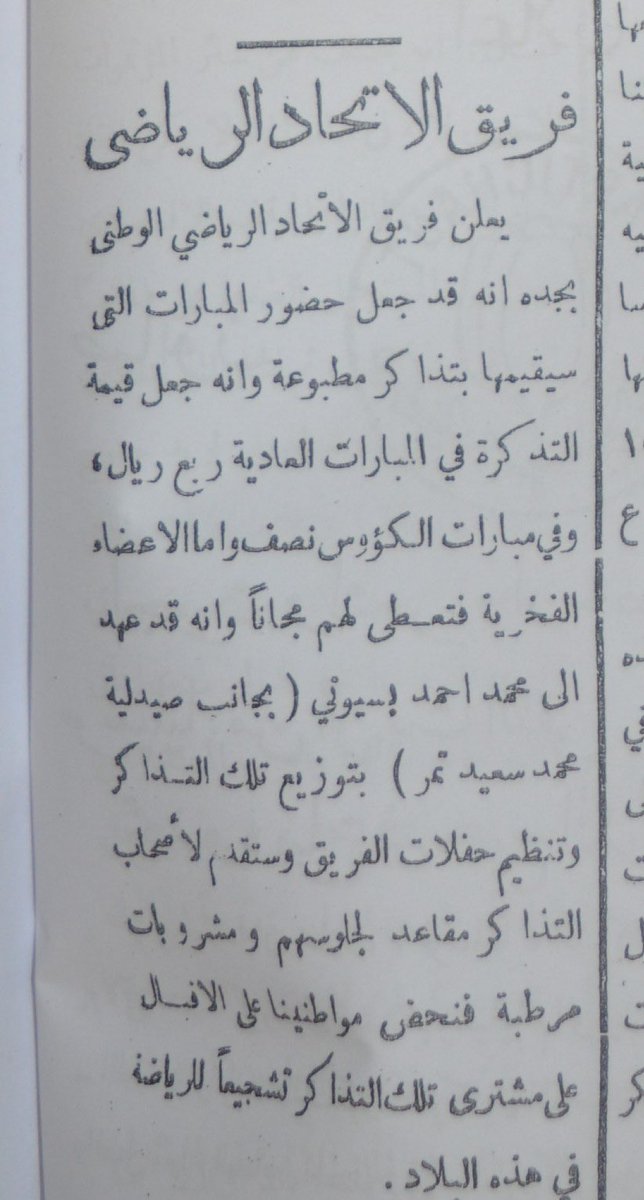 فريق الاتحاد الرياضى
يعلن فريق الاتحاد الرياضي الوطنى
بجده انه قد جعل حضور المبارات التى
سيقيمها بتذاكر مطبوعة وانه جعل قيمة
التذكرة في المبارات العادية ربع ريال،
وفي مبارات الكؤوس نصف واما الاعضاء
الفخرية فتعطى لهم مجاناً وانه قد عهد
الى محمد احمد بسيوني ( بجانب صيدلية
محمد سعيد تمر ) بتوزيع تلك التذاكر
وتنظيم حفلات الفريق وستقدم لأصحاب
التذاكر مقاعد لجلوسهم ومشروبات
مرطبة فنحض مواطنينا على الاقبال
على مشترى تلك التذاكر تشجيعاً للرياضة
في هذه البلاد .